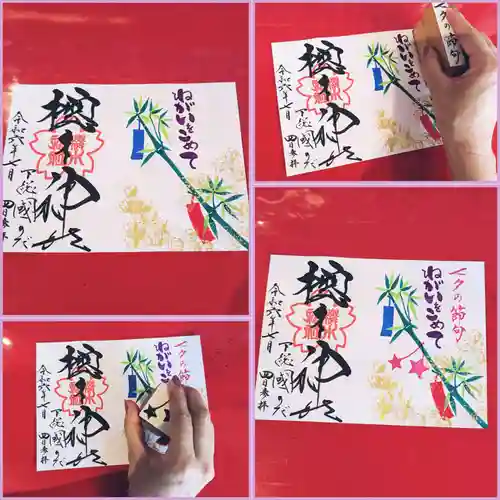 ねがいをこめて
櫻木神社
下総國のだ
令和六年七月
四日参拝
七夕の節句
ねがいをこめて
櫻木神社
下総國のだ
令和六年七月
四日参拝
七夕の節句
ねがいをこめて
櫻木神社
下総國のだ
令和六年七月
四日参拝
七夕の節句
ねがいをこめて
櫻木神社
下総國のだ
令和六年七月
四日参拝